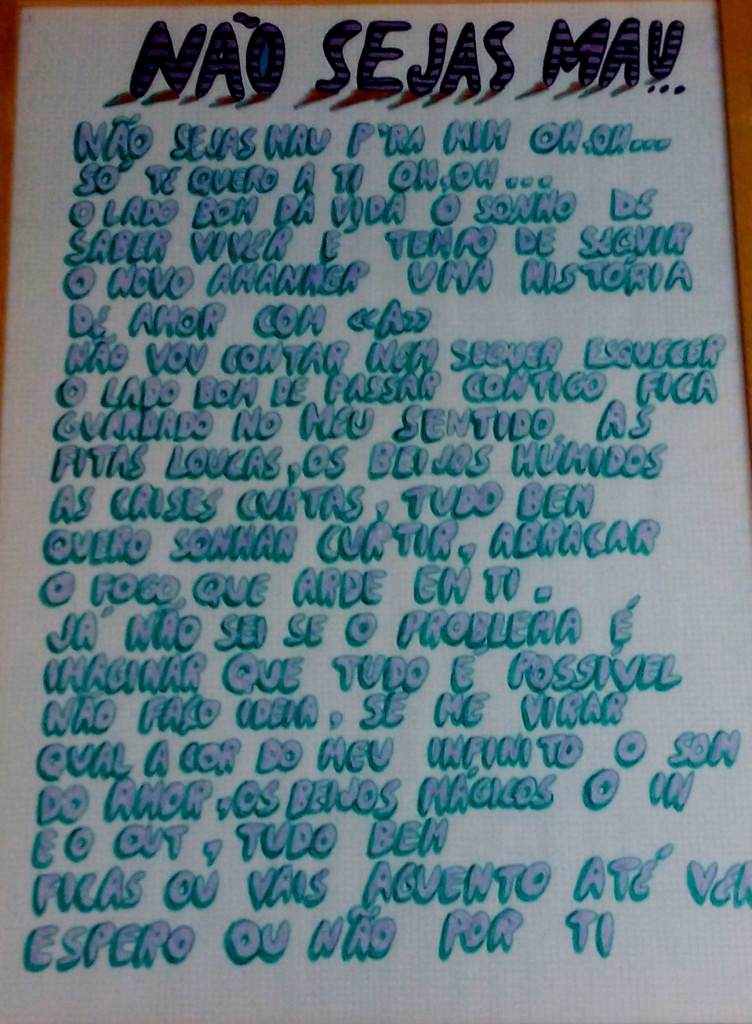 NÃO SEJAS MAU...
NÃO SEJAS MAU P'RA MIM OH,OH...
SÓ TE QUERO A TI OH,OH...
O LADO BOM DA VIDA O SONHO DE
SABER VIVER É TEMPO DE SEGUIR
O NOVO AMANHHER UMA HISTÓRIA
DE AMOR COM «A»
NÃO VOU CONTAR NEM SEQUER ESQUECER
O LADO BOM DE PASSAR CONTIGO FICA
GUARDADO NO MEU SENTIDO AS
FITAS LOUCAS, OS BEIJOS HÚMIDOS
AS CRISES CURTAS, TUDO BEM
QUERO SONHAR CURTIR, ABRAÇAR
O FOGO QUE ARDE EM TI.
JÁ NÃO SEI SE O PROBLEMA É
IMAGINAR QUE TUDO É POSSÍVEL
NÃO FAÇO IDEIA, SE ME VIRAR
QUAL A COR DO MEU INFINITO O SOM
DO AMOR, OS BEIJOS MÁGICOS O IN
E O OUT, TUDO BEM
FICAS OU VAIS AGUENTO ATÉ VER
ESPERO OU NÃO POR TI